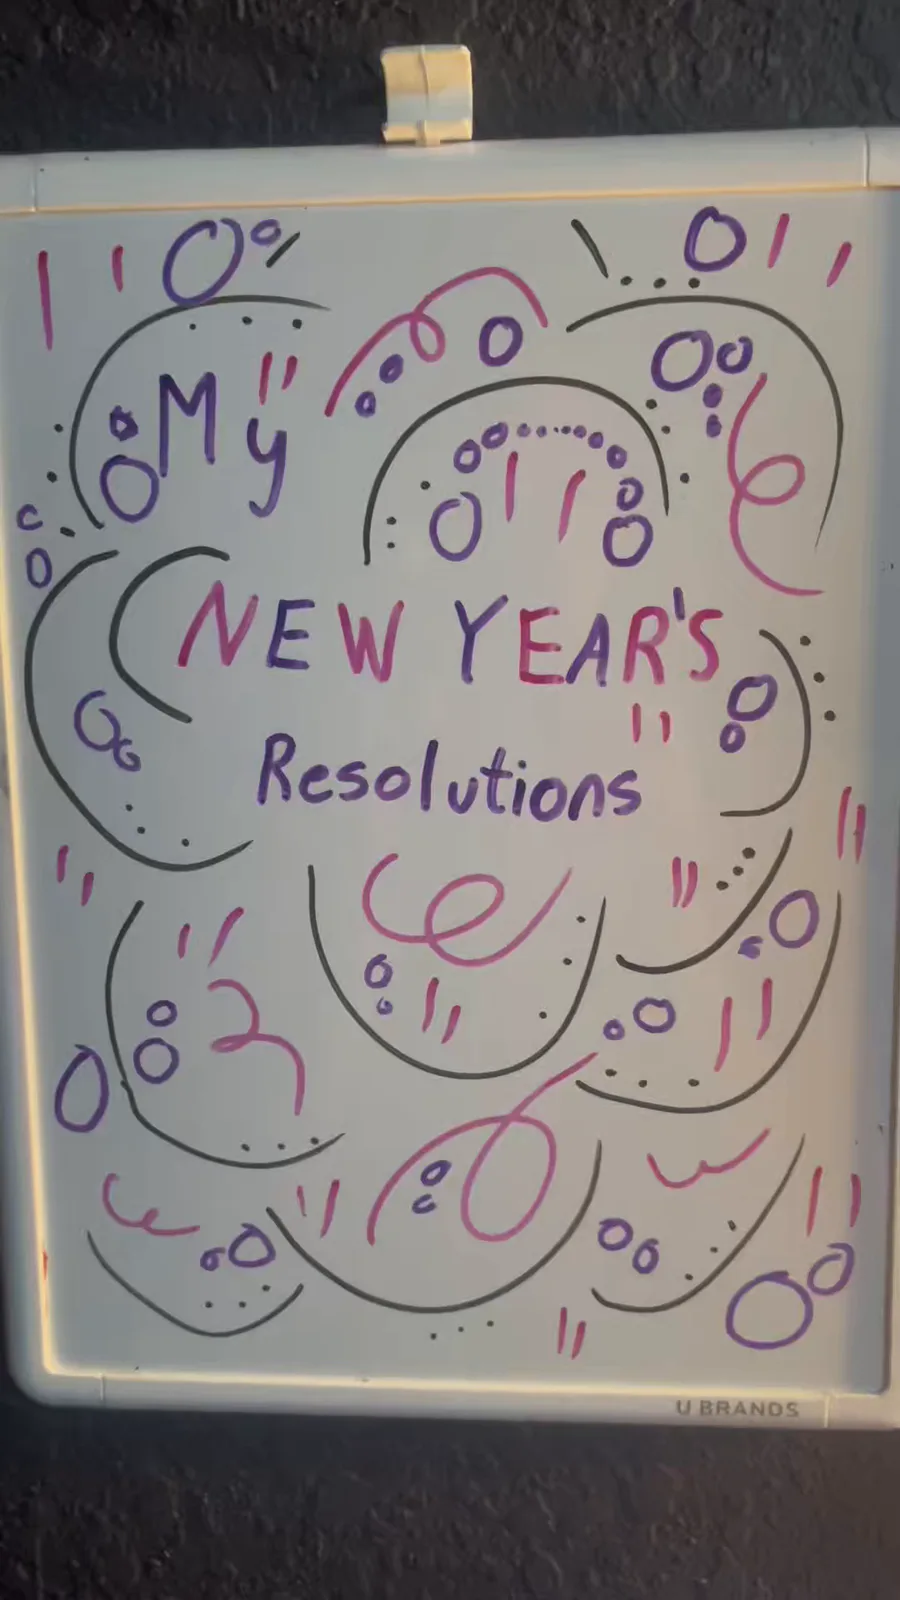 My
NEW YEAR'S
Resolutions
U BRANDS